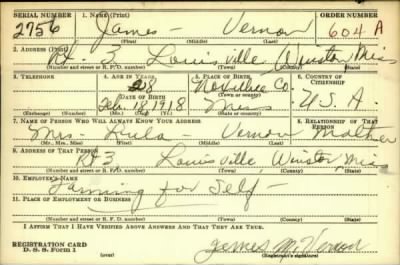 SERIAL NUMBER 1. NAME (Print) ORDER NUMBER
2756 James - Vernon 604 A
(First) (Middle) (Last)
2. ADDRESS (Print)
Rt. 3 Louisville, Winston, Miss
(Number and street or R. F. D. number) (Town) (County) (State)
3. TELEPHONE 4. AGE IN YEARS 5. PLACE OF BIRTH 6. COUNTRY OF CITIZENSHIP
Noxubee Co.
DATE OF BIRTH (Town or county)
Feb. 18, 1918 Miss U.S.A.
(Exchange) (Number) (Mo.) (Day) (Yr.) (State or country)
7. NAME OF PERSON WHO WILL ALWAYS KNOW YOUR ADDRESS 8. RELATIONSHIP OF THAT PERSON
Mrs. Lula - Vernon Mother
(Mr., Mrs., Miss) (First) (Middle) (Last)
9. ADDRESS OF THAT PERSON
Rt 3 Louisville, Winston, Miss
(Number and street or R. F. D. number) (Town) (County) (State)
10. EMPLOYER'S NAME
Farming for Self -
11. PLACE OF EMPLOYMENT OR BUSINESS
(Number and street or R. F. D. number) (Town) (County) (State)
I AFFIRM THAT I HAVE VERIFIED ABOVE ANSWERS AND THAT THEY ARE TRUE.
REGISTRATION CARD James M. Vernon
D. S. S. Form 1 (Registrant's signature)